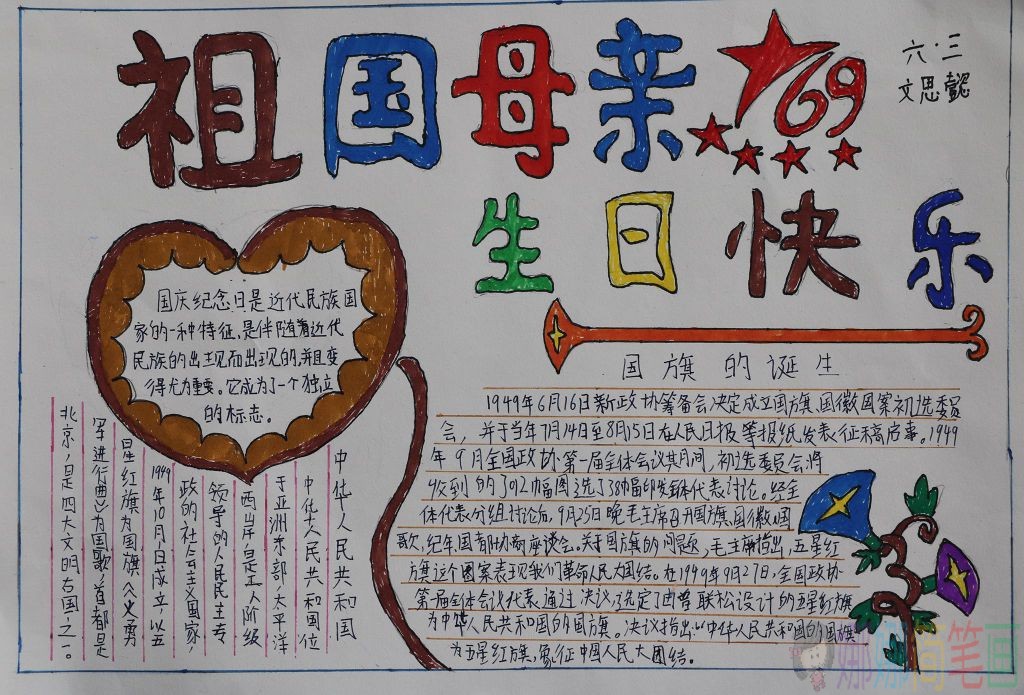 祖国母亲
69
六·三
文思懿
生日快乐
国庆纪念日是近代民族国
家的一种特征,是伴随着近代
民族的出现而出现的,并且变
得尤为重要。它成为了一个独立
的标志。
中华人民共和国
中华人民共和国位
于亚洲东部,太平洋
西岸,是工人阶级
领导的人民民主专
政的社会主义国家,
1949年10月1日成立,以五
星红旗为国旗,《义勇
军进行曲》为国歌,首都是
北京,是四大文明古国之一。
国旗的诞生
1949年6月16日新政协筹备会决定成立国旗、国徽图案初选委员
会,并于当年7月14日至8月15日在人民日报等报纸发表征稿启事。1949
年9月全国政协第一届全体会议其月间,初选委员会将
收到的3012幅图选了38幅印发全体代表讨论。经全
体代表分组讨论后,9月25日晚毛主席召开国旗、国徽、国
歌、纪年、国都协商座谈会。关于国旗的问题,毛主席指出,五星红
旗这个图案表现我们革命人民大团结。在1949年9月27日,全国政协
第一届全体会议代表通过决议,选定了由曾联松设计的五星红旗
为中华人民共和国的国旗。决议指出:以中华人民共和国的国旗
为五星红旗,象征中国人民大团结。
娜娜简笔画